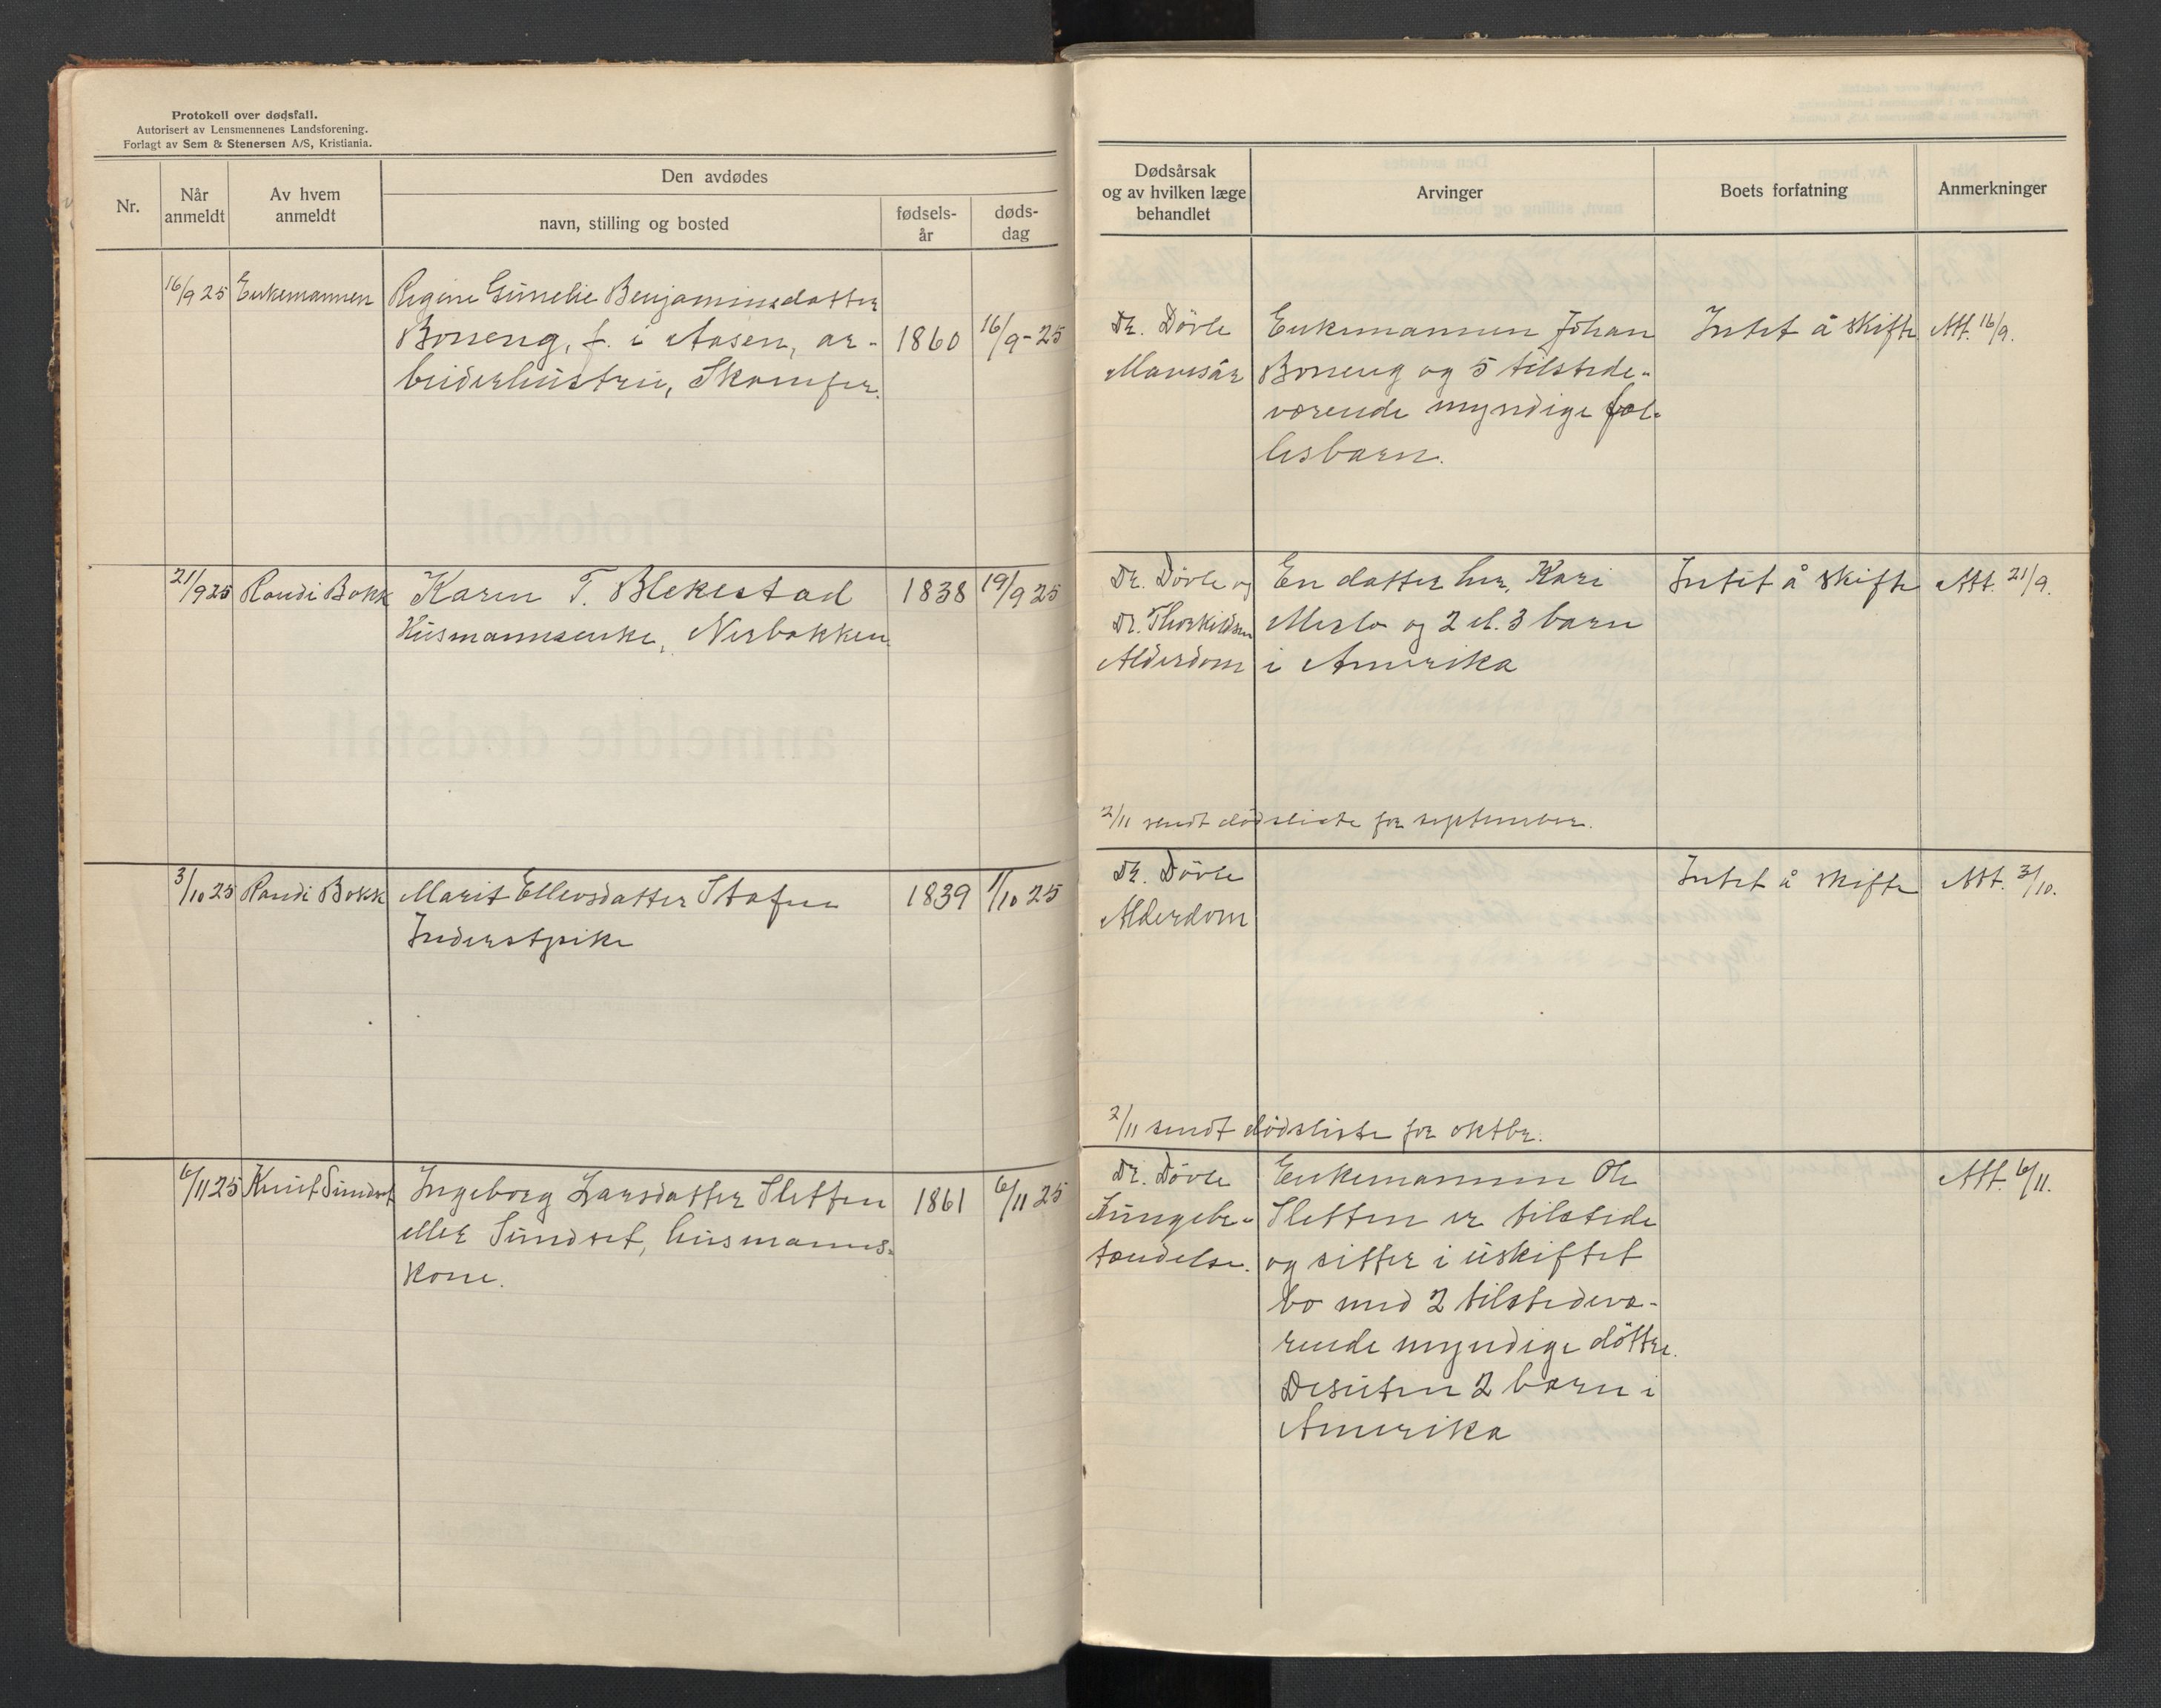 Protokoll over dødsfall.
Autorisert av Lensmennenes Landsforening.
Forlagt av Sem & Stenersen A/S, Kristiania.
Nr.
Når anmeldt
Av hvem anmeldt
Den avdødes
navn, stilling og bosted
fødsels-år
døds-dag
Dødsårsak og av hvilken læge behandlet
Arvinger
Boets forfatning
Anmerkninger
16/9 25 Enkemannen
Regine Gunelie Benjaminsdatter
Borreng, f. i Aasen, ar-
beiderhustru, Skamfer.
1860
16/9-25
Dr. Dövle
Mavesår
Enkemannen Johan
Borreng og 5 tilstede-
værende myndige fæl-
lesbarn.
Intet å skifte
Att. 16/9.
21/9 25 Randi Bakk
Karen T. Blekestad
Husmannsenke, Nerbakken
1838
19/9 25
Dr. Dövle og
Dr. Thorkildsen
Alderdom
En datter her, Kari
Merlo og 2 el. 3 barn
i Amerika
Intet å skifte
Att. 21/9.
2/11 sendt dødsliste for september.
3/10 25 Randi Bakk
Marit Ellevsdatter Stafne
Inderstpike
1839
1/10 25
Dr. Dövle
Alderdom
Intet å skifte
Att. 3/10.
2/11 sendt dödsliste for oktbr.
6/11 25 Knut Sundset
Ingeborg Larsdatter Sletten
eller Sundset, husmanns-
kone.
1861
6/11 25
Dr. Dövle
Lungebe-
tændelse.
Enkemannen Ole
Sletten er tilstede
og sitter i uskiftet
bo med 2 tilstedevæ-
rende myndige döttre.
Desuten 2 barn i
Amerika
Att. 6/11.